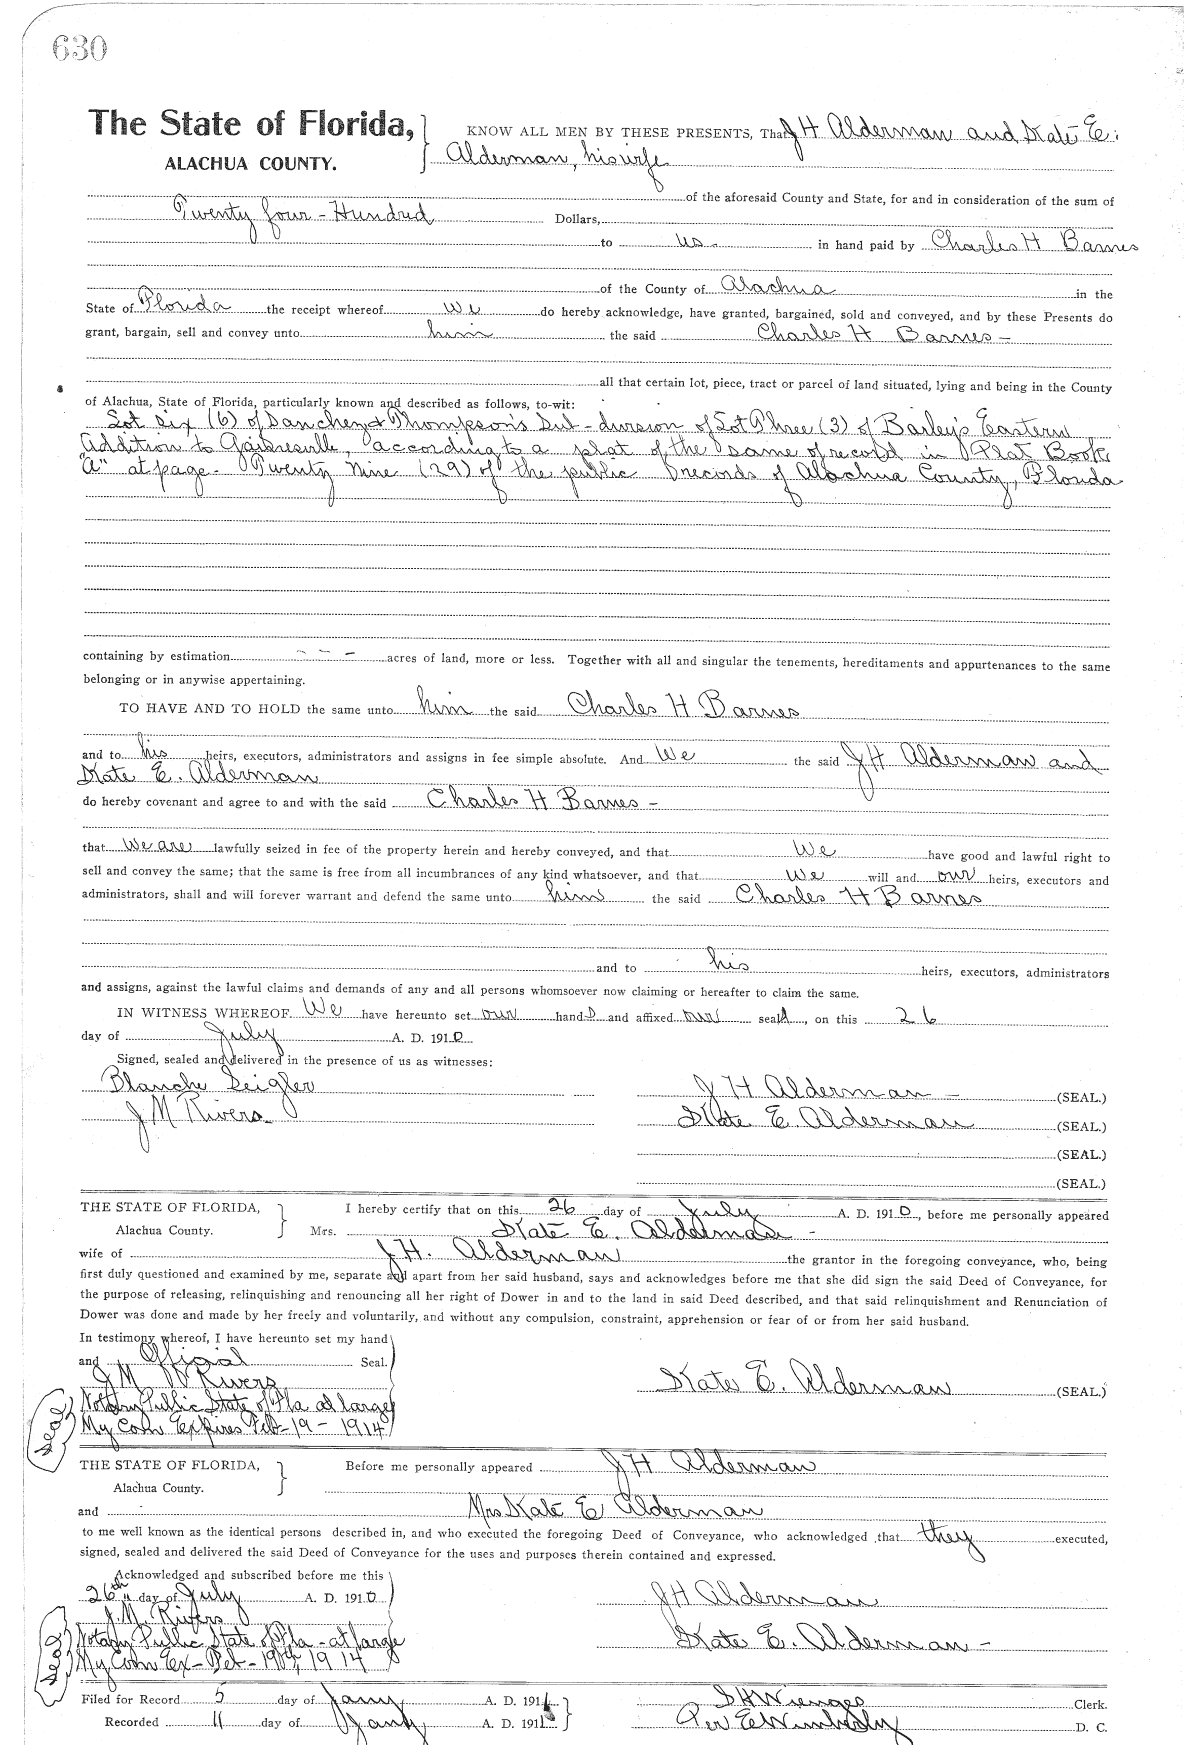 630
The State of Florida,
ALACHUA COUNTY.
KNOW ALL MEN BY THESE PRESENTS, That J H Alderman and Kate E.
Alderman, his wife
of the aforesaid County and State, for and in consideration of the sum of
Twenty four - Hundred Dollars,
to us in hand paid by Charles H Barnes
of the County of Alachua in the
State of Florida the receipt whereof we do hereby acknowledge, have granted, bargained, sold and conveyed, and by these Presents do
grant, bargain, sell and convey unto him the said Charles H Barnes -
all that certain lot, piece, tract or parcel of land situated, lying and being in the County
of Alachua, State of Florida, particularly known and described as follows, to-wit:
Lot six (6) of Sanchez & Thompson's Sub-division of Lot Three (3) of Bailey's Eastern
Addition to Gainesville, according to a plat of the same of record in Plat Book
"A" at page - Twenty Nine (29) of the public records of Alachua County, Florida
containing by estimation - - - acres of land, more or less. Together with all and singular the tenements, hereditaments and appurtenances to the same
belonging or in anywise appertaining.
TO HAVE AND TO HOLD the same unto him the said Charles H Barnes
and to his heirs, executors, administrators and assigns in fee simple absolute. And We the said J H Alderman and
Kate E. Alderman
do hereby covenant and agree to and with the said Charles H Barnes -
that We are lawfully seized in fee of the property herein and hereby conveyed, and that We have good and lawful right to
sell and convey the same; that the same is free from all incumbrances of any kind whatsoever, and that We will and our heirs, executors and
administrators, shall and will forever warrant and defend the same unto him the said Charles H Barnes
and to his heirs, executors, administrators
and assigns, against the lawful claims and demands of any and all persons whomsoever now claiming or hereafter to claim the same.
IN WITNESS WHEREOF We have hereunto set our hands and affixed our seals, on this 26
day of July A. D. 1910
Signed, sealed and delivered in the presence of us as witnesses:
Blanche Seigler
J M Rivers
J H Alderman - (SEAL.)
Kate E. Alderman (SEAL.)
(SEAL.)
(SEAL.)
THE STATE OF FLORIDA,
Alachua County.
I hereby certify that on this 26 day of July A. D. 1910, before me personally appeared
Mrs. Kate E. Alderman -
wife of J. H. Alderman the grantor in the foregoing conveyance, who, being
first duly questioned and examined by me, separate and apart from her said husband, says and acknowledges before me that she did sign the said Deed of Conveyance, for
the purpose of releasing, relinquishing and renouncing all her right of Dower in and to the land in said Deed described, and that said relinquishment and Renunciation of
Dower was done and made by her freely and voluntarily, and without any compulsion, constraint, apprehension or fear of or from her said husband.
In testimony whereof, I have hereunto set my hand
and Official Seal.
J M Rivers
Notary Public State of Fla at large
My Com Expires Feb-19-1914
Seal
Kate E. Alderman (SEAL.)
THE STATE OF FLORIDA,
Alachua County.
Before me personally appeared J H Alderman
and Mrs Kate E Alderman
to me well known as the identical persons described in, and who executed the foregoing Deed of Conveyance, who acknowledged that they executed,
signed, sealed and delivered the said Deed of Conveyance for the uses and purposes therein contained and expressed.
Acknowledged and subscribed before me this
26th day of July A. D. 1910
J. M. Rivers
Notary Public State of Fla - at large
My Com Ex - Feb - 19th, 1914
Seal
J H Alderman
Kate E. Alderman -
Filed for Record 5 day of Jany A. D. 1911
Recorded 11 day of Jany A. D. 1911
S H Wienges Clerk.
Per E Wimberly D. C.